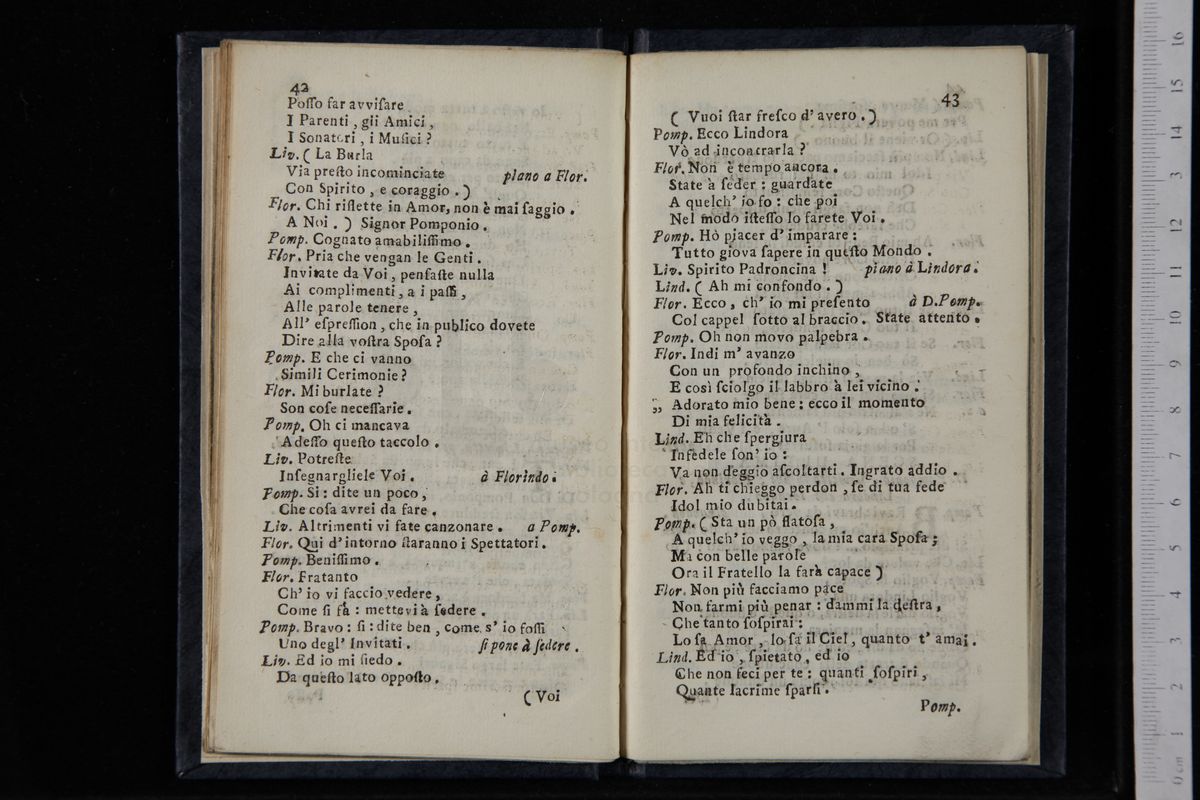 42
Poſſo far avviſare
I Parenti, gli Amici,
I Sonatori, i Muſici?
Liv. ( La Burla
Via preſto incominciate piano a Flor.
Con Spirito, e coraggio. )
Flor. Chi riflette in Amor, non è mai ſaggio.
A Noi. ) Signor Pomponio.
Pomp. Cognato amabiliſſimo.
Flor. Pria che vengan le Genti.
Invitate da Voi, penſaſte nulla
Ai complimenti, a i paſſi,
Alle parole tenere,
All' eſpreſſion, che in publico dovete
Dire alla voſtra Spoſa?
Pomp. E che ci vanno
Simili Cerimonie?
Flor. Mi burlate?
Son coſe neceſſarie.
Pomp. Oh ci mancava
Adeſſo queſto taccolo.
Liv. Potreſte
Inſegnargliele Voi. à Florindo.
Pomp. Si: dite un poco,
Che coſa avrei da fare.
Liv. Altrimenti vi fate canzonare. a Pomp.
Flor. Qui d'intorno ſtaranno i Spettatori.
Pomp. Beniſſimo.
Flor. Fratanto
Ch' io vi faccio vedere,
Come ſi fà: mettevi à ſedere.
Pomp. Bravo: ſi: dite ben, come s' io foſſi
Uno degl' Invitati. ſi pone à ſedere.
Liv. Ed io mi ſiedo.
Da queſto lato oppoſto.
( Voi
43
( Vuoi ſtar freſco d' avero. )
Pomp. Ecco Lindora
Vò ad incontrarla?
Flor. Non è tempo ancora.
State à ſeder: guardate
A quelch' io fo: che poi
Nel modo iſteſſo lo farete Voi.
Pomp. Hò piacer d' imparare:
Tutto giova ſapere in queſto Mondo.
Liv. Spirito Padroncina! piano à Lindora.
Lind. ( Ah mi confondo. )
Flor. Ecco, ch' io mi preſento à D. Pomp.
Col cappel ſotto al braccio. State attento.
Pomp. Oh non movo palpebra.
Flor. Indi m' avanzo
Con un profondo inchino,
E così ſciolgo il labbro à lei vicino.
„ Adorato mio bene: ecco il momento
Di mia felicità.
Lind. Eh che ſpergiura
Infedele ſon' io:
Va non deggio aſcoltarti. Ingrato addio.
Flor. Ah ti chieggo perdon, ſe di tua fede
Idol mio dubitai.
Pomp. ( Sta un pò flatoſa,
A quelch' io veggo, la mia cara Spoſa;
Ma con belle parole
Ora il Fratello la farà capace )
Flor. Non più facciamo pace
Non farmi più penar: dammi la deſtra,
Che tanto ſoſpirai:
Lo ſa Amor, lo ſa il Ciel, quanto t' amai.
Lind. Ed io, ſpietato, ed io
Che non feci per te: quanti ſoſpiri,
Quante lacrime ſparſi.
Pomp.